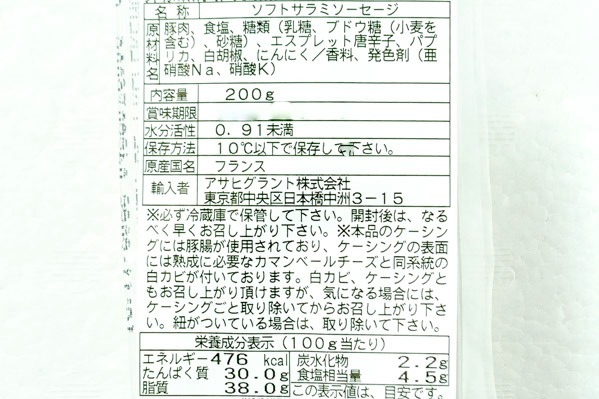 名称 ソフトサラミソーセージ
原材料名 豚肉、食塩、糖類（乳糖、ブドウ糖（小麦を
含む）、砂糖）、エスプレット唐辛子、パプ
リカ、白胡椒、にんにく／香料、発色剤（亜
硝酸Ｎａ、硝酸Ｋ）
内容量 200g
賞味期限
水分活性 0.91未満
保存方法 10℃以下で保存して下さい。
原産国名 フランス
輸入者 アサヒグラント株式会社
東京都中央区日本橋中洲3－15
※必ず冷蔵庫で保管して下さい。開封後は、なる
べく早くお召し上がり下さい。※本品のケーシン
グには豚腸が使用されており、ケーシングの表面
には熟成に必要なカマンベールチーズと同系統の
白カビが付いております。白カビ、ケーシングと
もお召し上がり頂けますが、気になる場合には、
ケーシングごと取り除いてからお召し上がり下さ
い。紐がついている場合は、取り除いて下さい。
栄養成分表示（100g当たり）
エネルギー 476 kcal 炭水化物 2.2g
たんぱく質 30.0g 食塩相当量 4.5g
脂質 38.0g この表示値は、目安です。